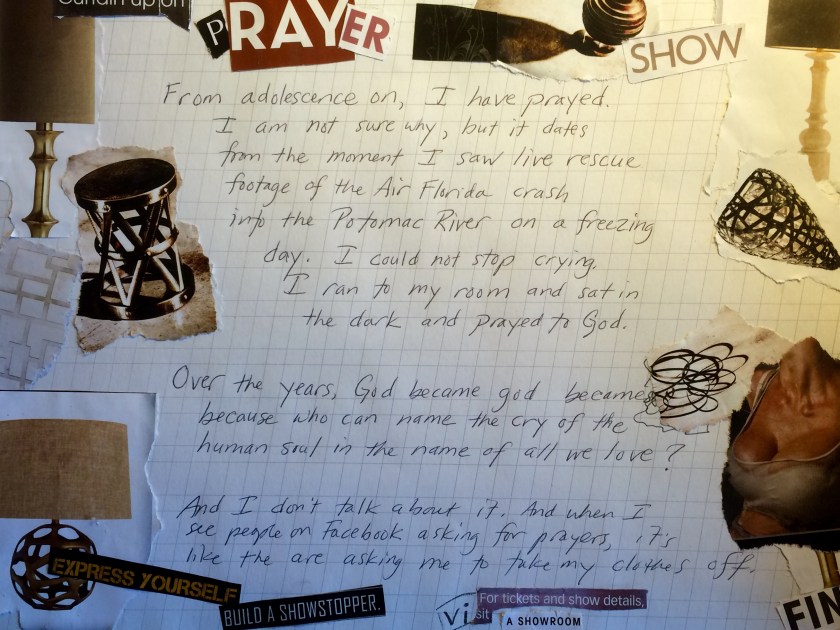 Curtain up on
PRAYER
SHOW
From adolescence on, I have prayed.
I am not sure why, but it dates
from the moment I saw live rescue
footage of the Air Florida crash
into the Potomac River on a freezing
day. I could not stop crying.
I ran to my room and sat in
the dark and prayed to God.
Over the years, God became god became
because who can name the cry of the
human soul in the name of all we love?
And I don't talk about it. And when I
see people on Facebook asking for prayers, it's
like the are asking me to take my clothes off.
EXPRESS YOURSELF
BUILD A SHOWSTOPPER.
Vi
For tickets and show details,
sit
A SHOWROOM
FIN